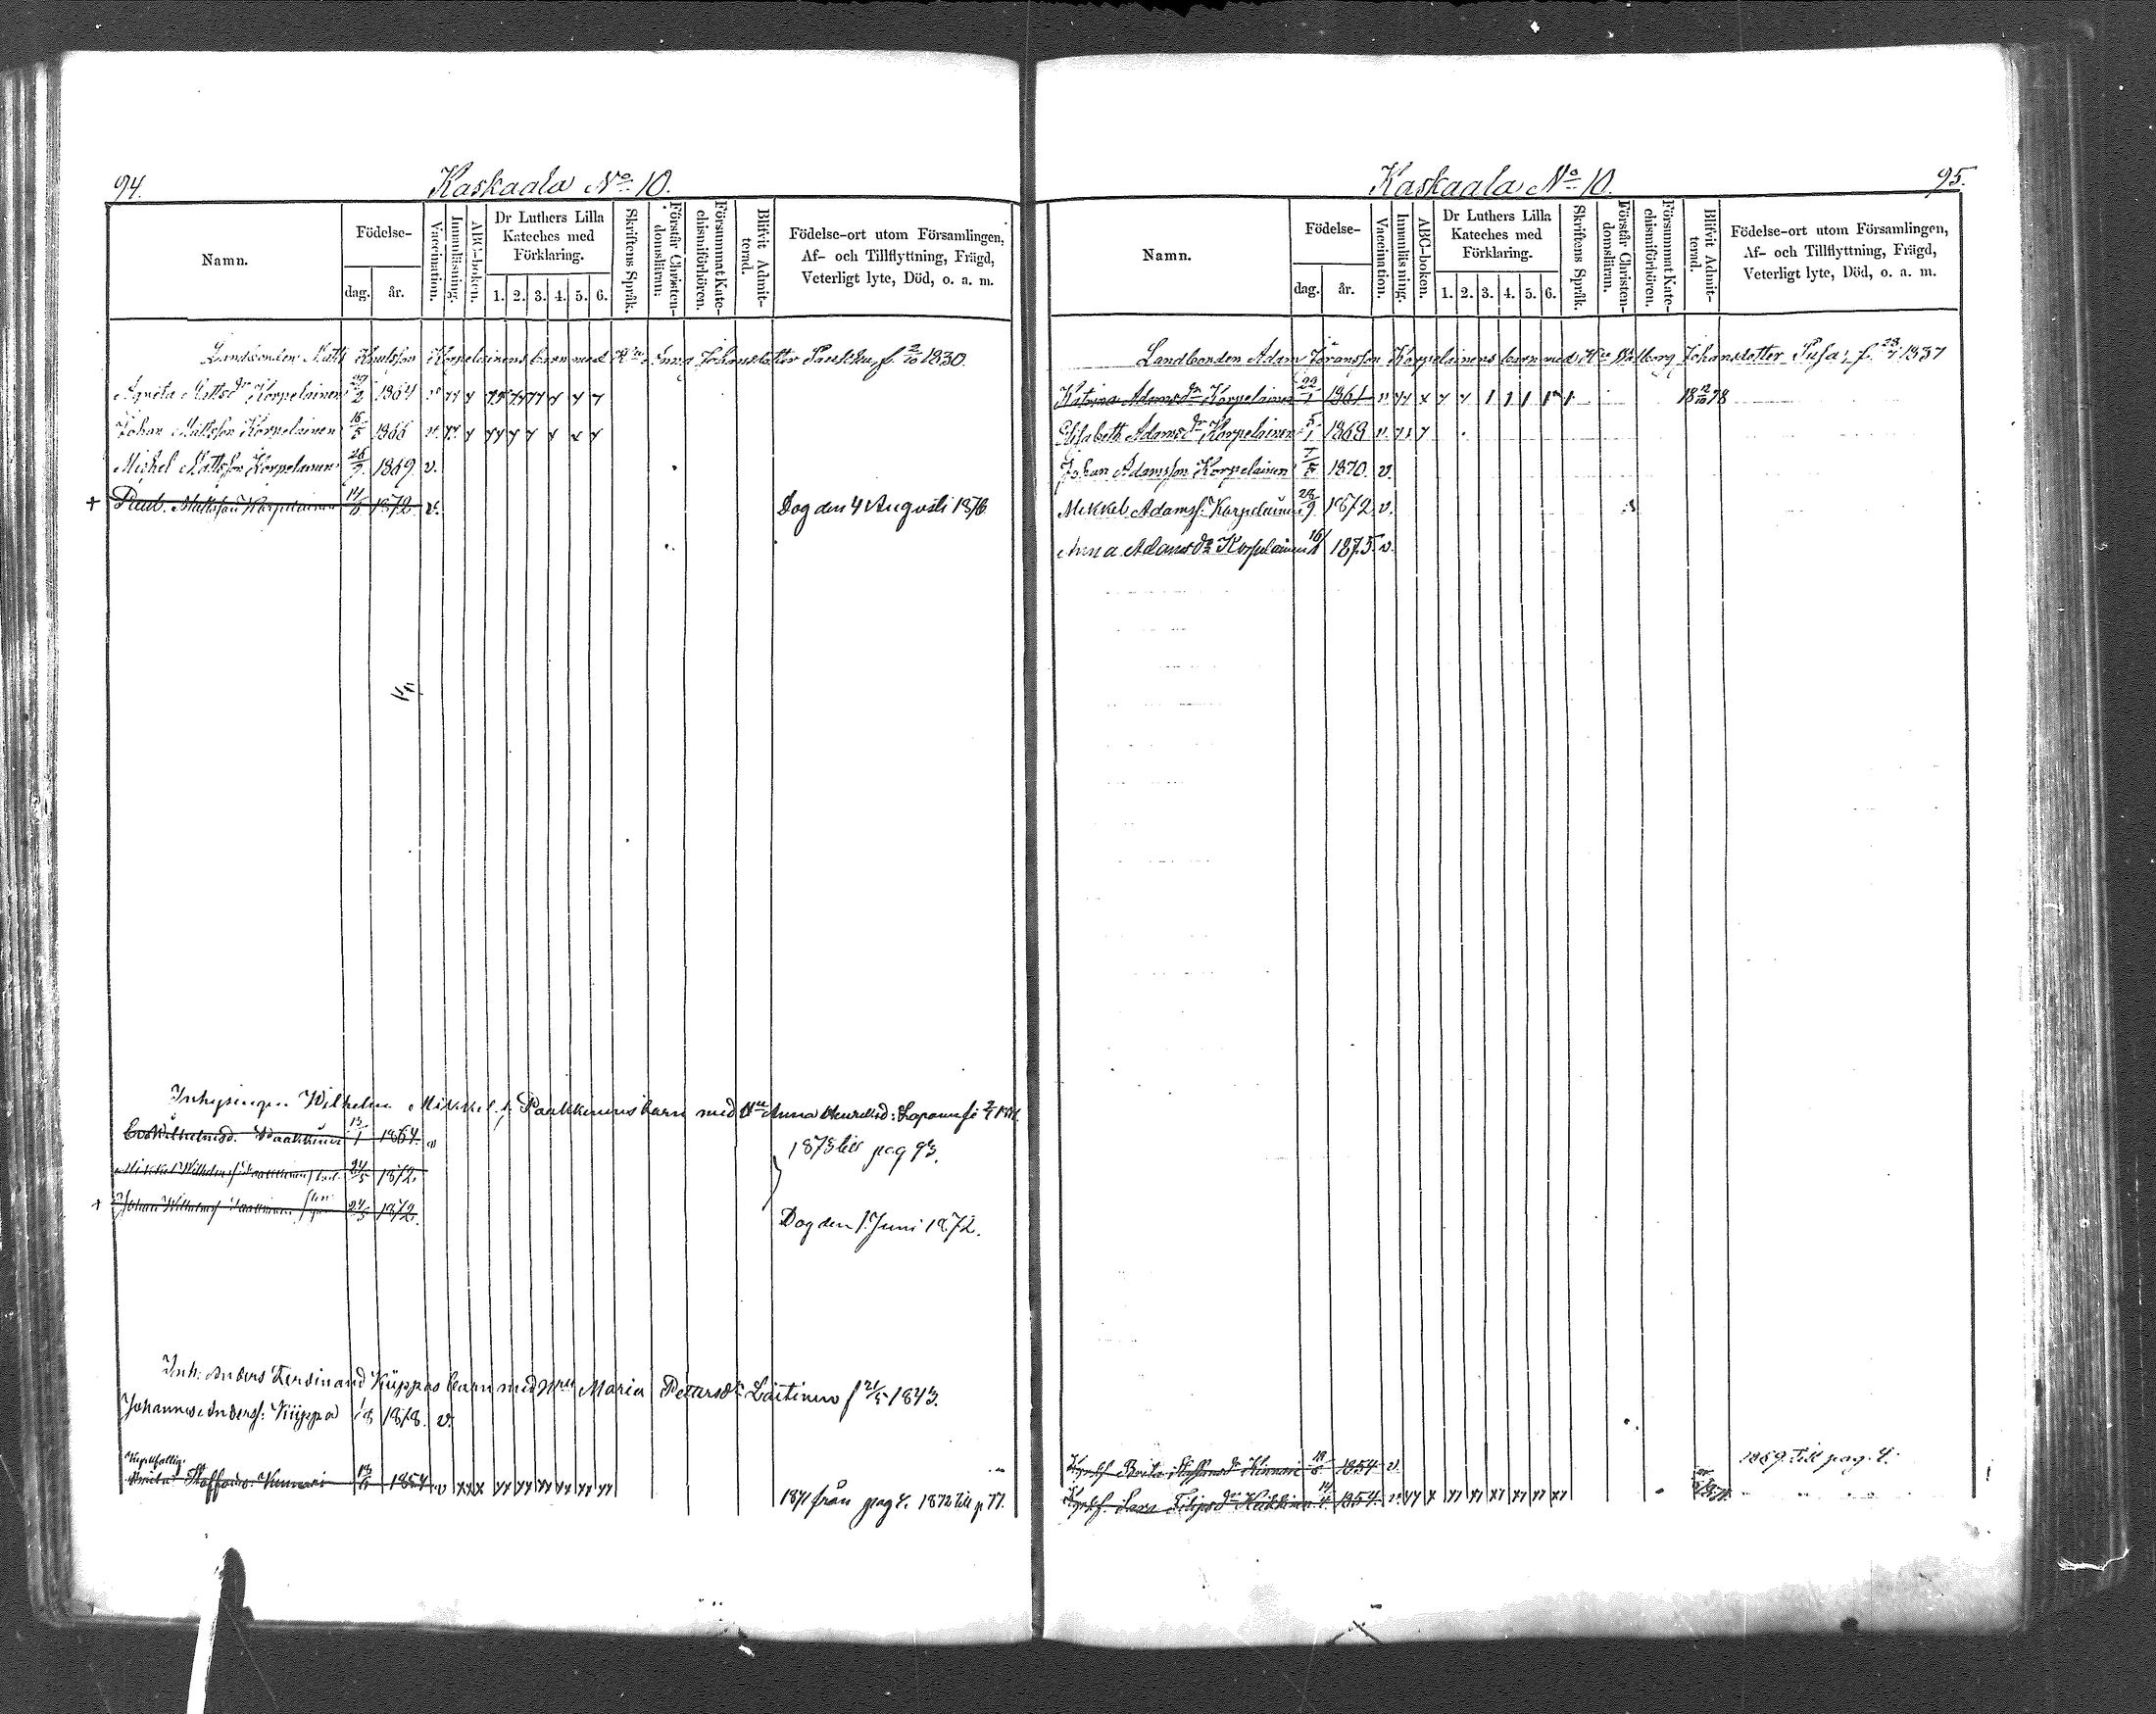 94. Kaskaala No 10.
Namn. Födelse- dag. år. Vaccination. Innanläsning. ABC-boken. Dr Luthers Lilla Kateches med Förklaring. 1. 2. 3. 4. 5. 6. Skriftens Språk. Förstår Christendomsläran: Försummat Katechismiförhören. Blifvit Admitterad. Födelse-ort utom Församlingen, Af- och Tillflyttning, Frägd, Veterligt lyte, Död, o. a. m.
Landbonden Matts Knutsson Korpelainens barn med Anna Johansdotter f. 2/10 1830.
Agneta Mattsdr Korpelainen 27/2 1864
Johan Mattsson Korpelainen 16/5 1866
Michel Mattsson Korpelainen 26/9 1869. v.
+ Paul Mattsson Korpelainen 1872 v. Dog den 4 Augusti 1876
Inhysingen Wilhelm Mikkels. Paakkunens barn med Hu Anna
Eva Wilhelmsd. Paakkunen 13/1 1864. v 1873 till pag 93.
Mikkel Wilhelms. Paakkunen 24/5 1872.
+ Johan Wilhelms. Paakkunen 24/5 1872. Dog den 1 Juni 1872.
Inh. Anders Ferdinand Küppas barn med Hru Maria Petersdr Laitinen f 21/5 1843.
Johannes Anderss. Küppa 1878. v.
Brita Staffansd. Kinnari 1854 v xx x xx xx xx xx xx xx 1871 från pag 4. 1872 till p 77.
Kaskaala No 10. 95.
Namn. Födelse- dag. år. Vaccination. Innanläsning. ABC-boken. Dr Luthers Lilla Kateches med Förklaring. 1. 2. 3. 4. 5. 6. Skriftens Språk. Förstår Christendomsläran. Försummat Katechismiförhören. Blifvit Admitterad. Födelse-ort utom Församlingen, Af- och Tillflyttning, Frägd, Veterligt lyte, Död, o. a. m.
Landbonden Adam Göransson Korpelainens barn med Hu Walborg Johansdotter Pusa, f. 1837
Katrina Adamsdr Korpelainen 22/1 1861
Elisabeth Adamsdr Korpelainen 5/1 1868 v.
Johan Adamsson Korpelainen 1870. v.
Mikkel Adamss. Korpelainen 28/9 1872 v.
Anna Adamsdr Korpelainen 1875. v.
Brita Staffansdr Kinnari 1854 v. 1869 till pag. 4.
Sara Filipsdr 1854.